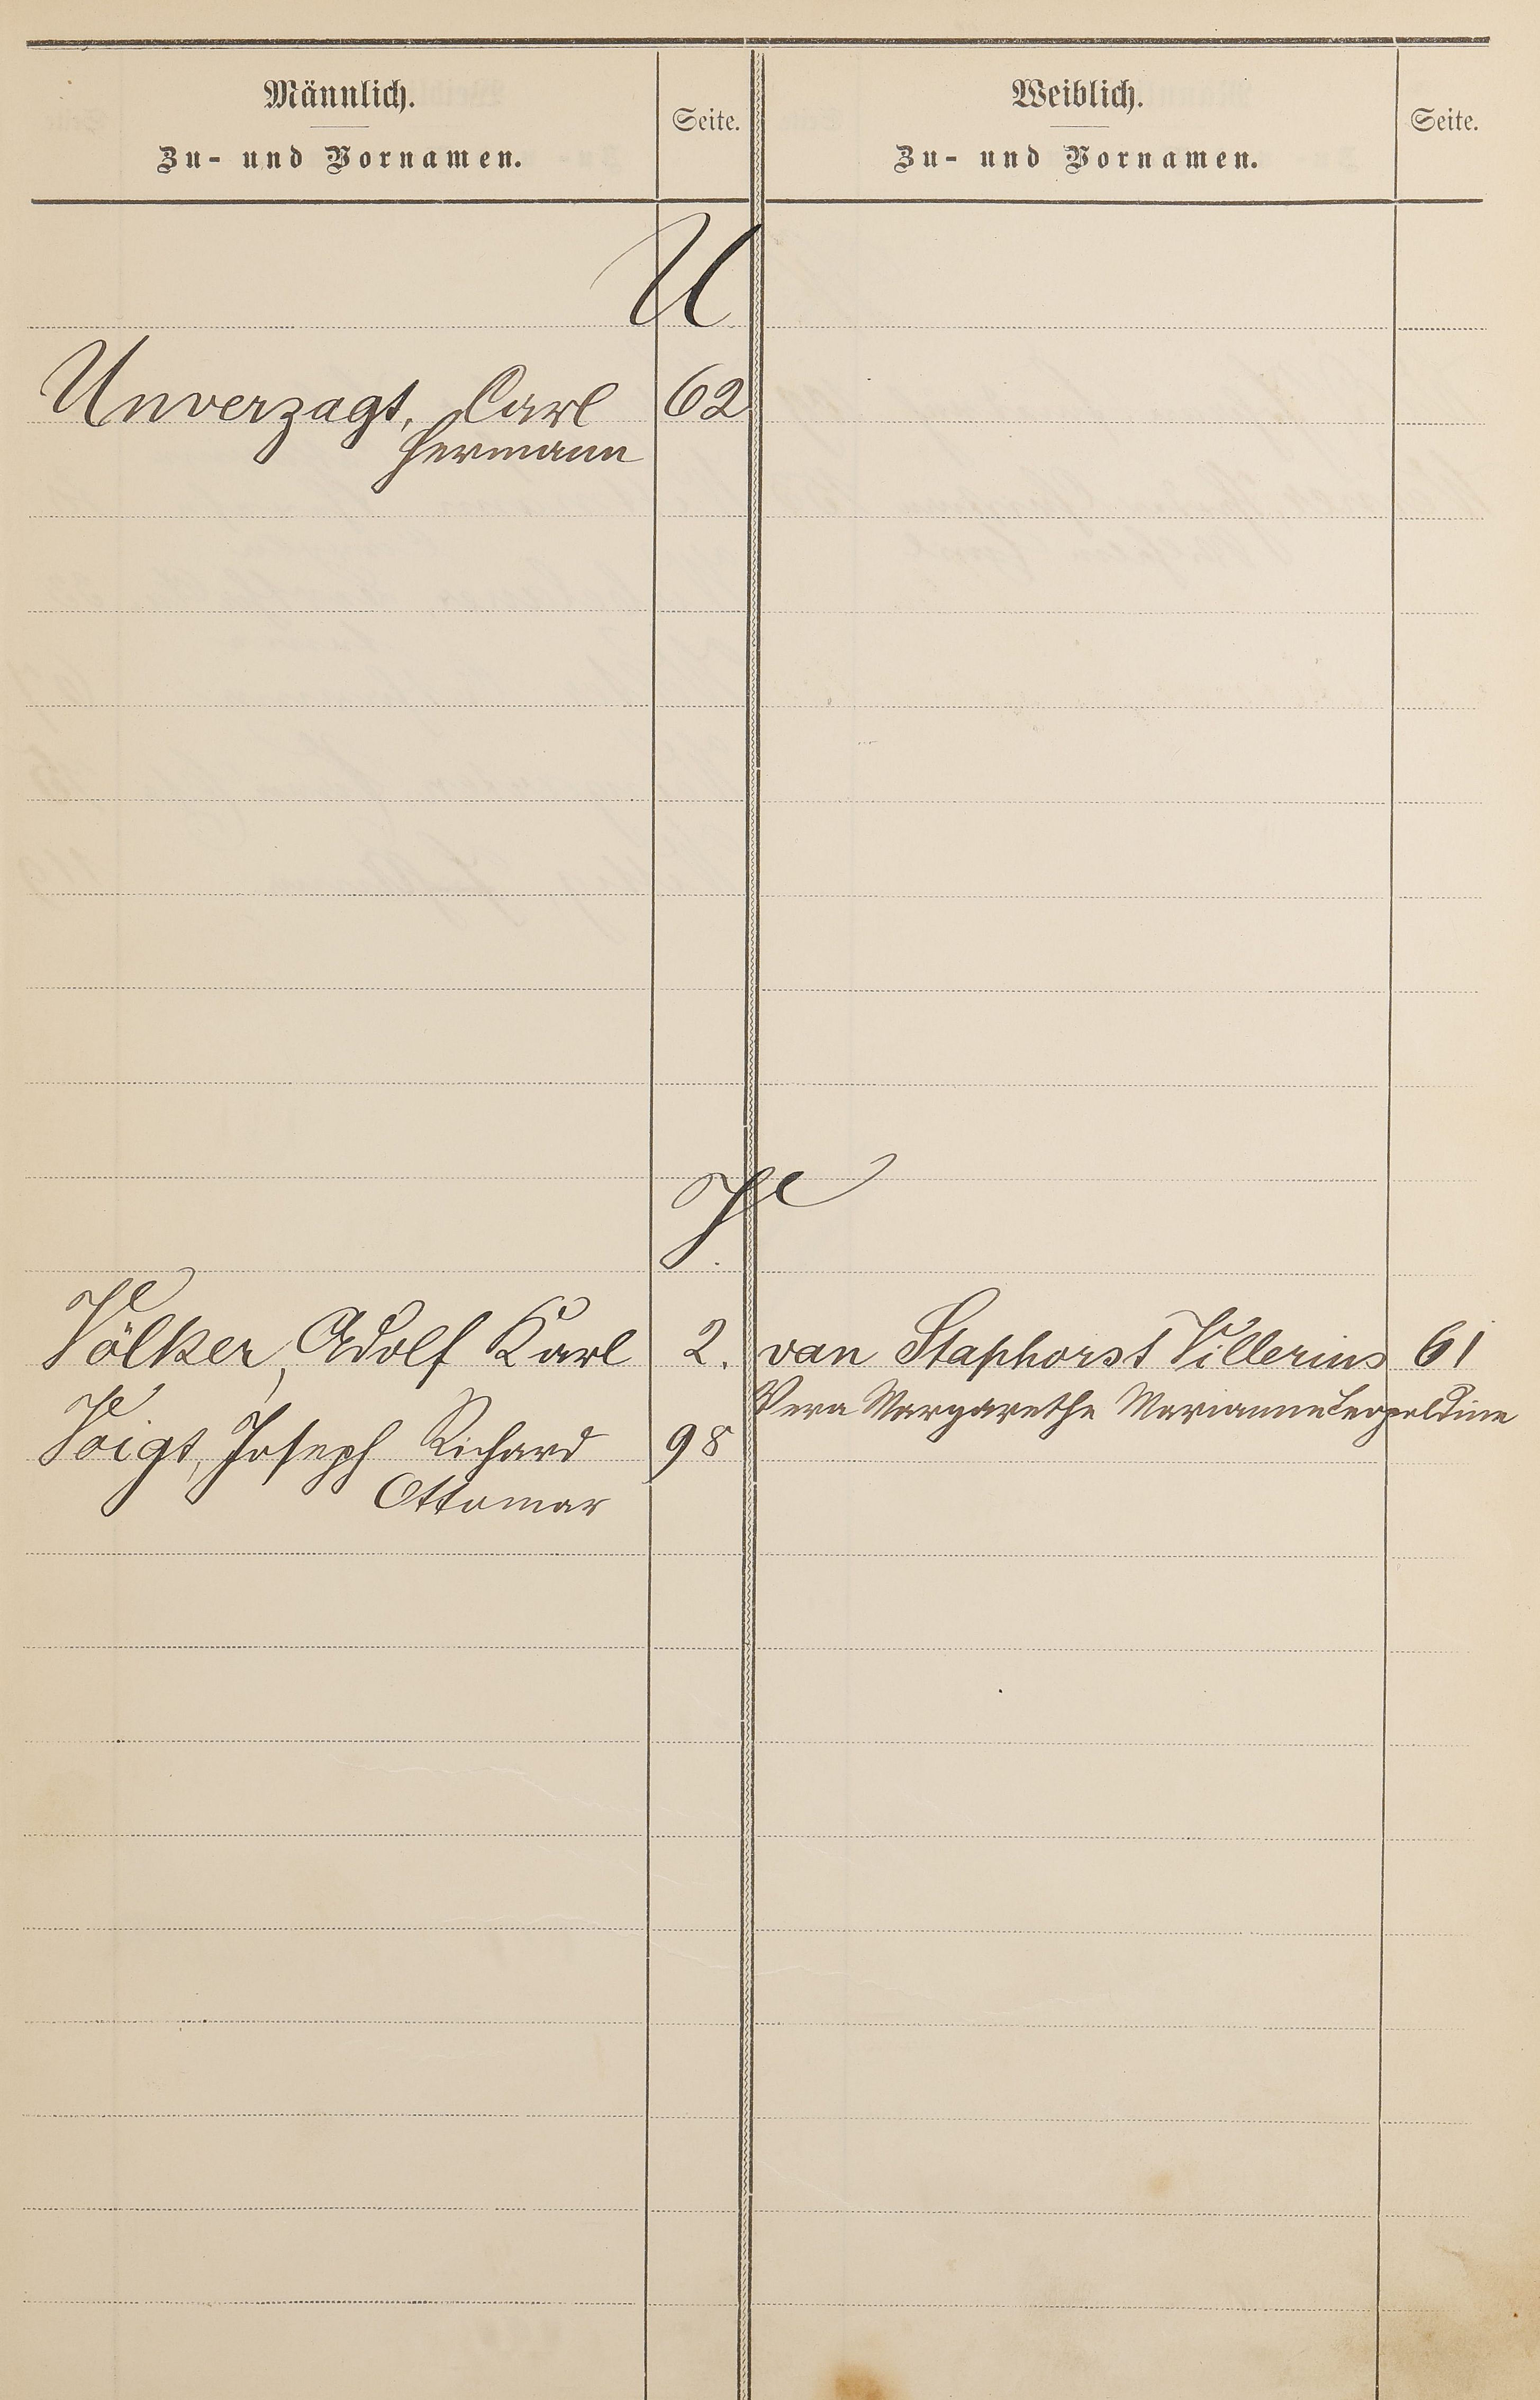 Männlich.
Zu- und Vornamen.
Seite.
Weiblich.
Zu- und Vornamen.
Seite.
U
Unverzagt, Carl 62
Hermann
V
Völker, Adolf Karl 2. van Staphorst Villerius 61
Vera Margarethe Marianne Leopoldine
Voigt, Joseph Richard 98
Ottomar